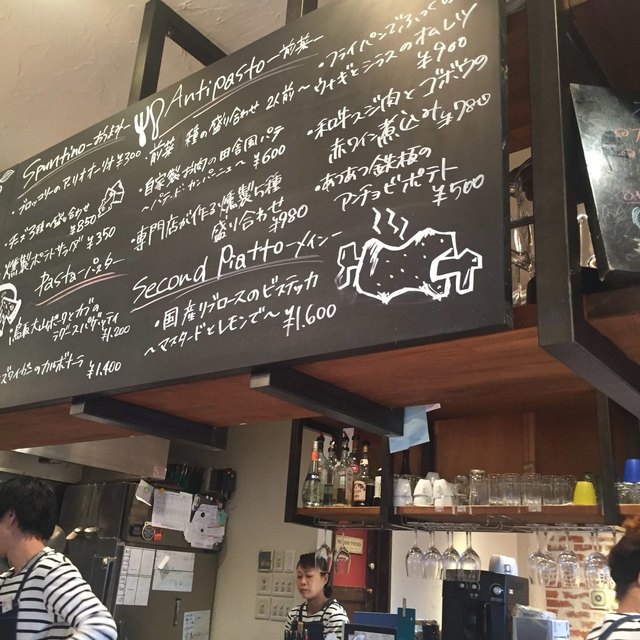 Spuntino -おとおし-
・ブロッコリーのアーリオオーリオ ¥300
・チーズ3種の盛り合わせ
¥850
燻製ポテトサラダ ¥350
Pasta -パスタ-
大山ポークとカブの
ラグースパゲッティ
¥1.200
のカルボナーラ
¥1.400
Antipasto -前菜-
・前菜 種の盛り合わせ 2人前〜
・自家製お肉の田舎風パテ
〜パテ・ド・カンパーニュ〜 ¥600
・専門店が作る燻製5種
盛り合わせ
¥980
Second Piatto -メイン-
・国産リブロースのビステッカ
〜マスタードとレモンで〜 ¥1.600
・フライパンで
ウナギとシラスのオムレツ
¥900
・和牛スジ肉とゴボウの
赤ワイン煮込み ¥780
・あつあつ鉄板の
アンチョビポテト
¥500